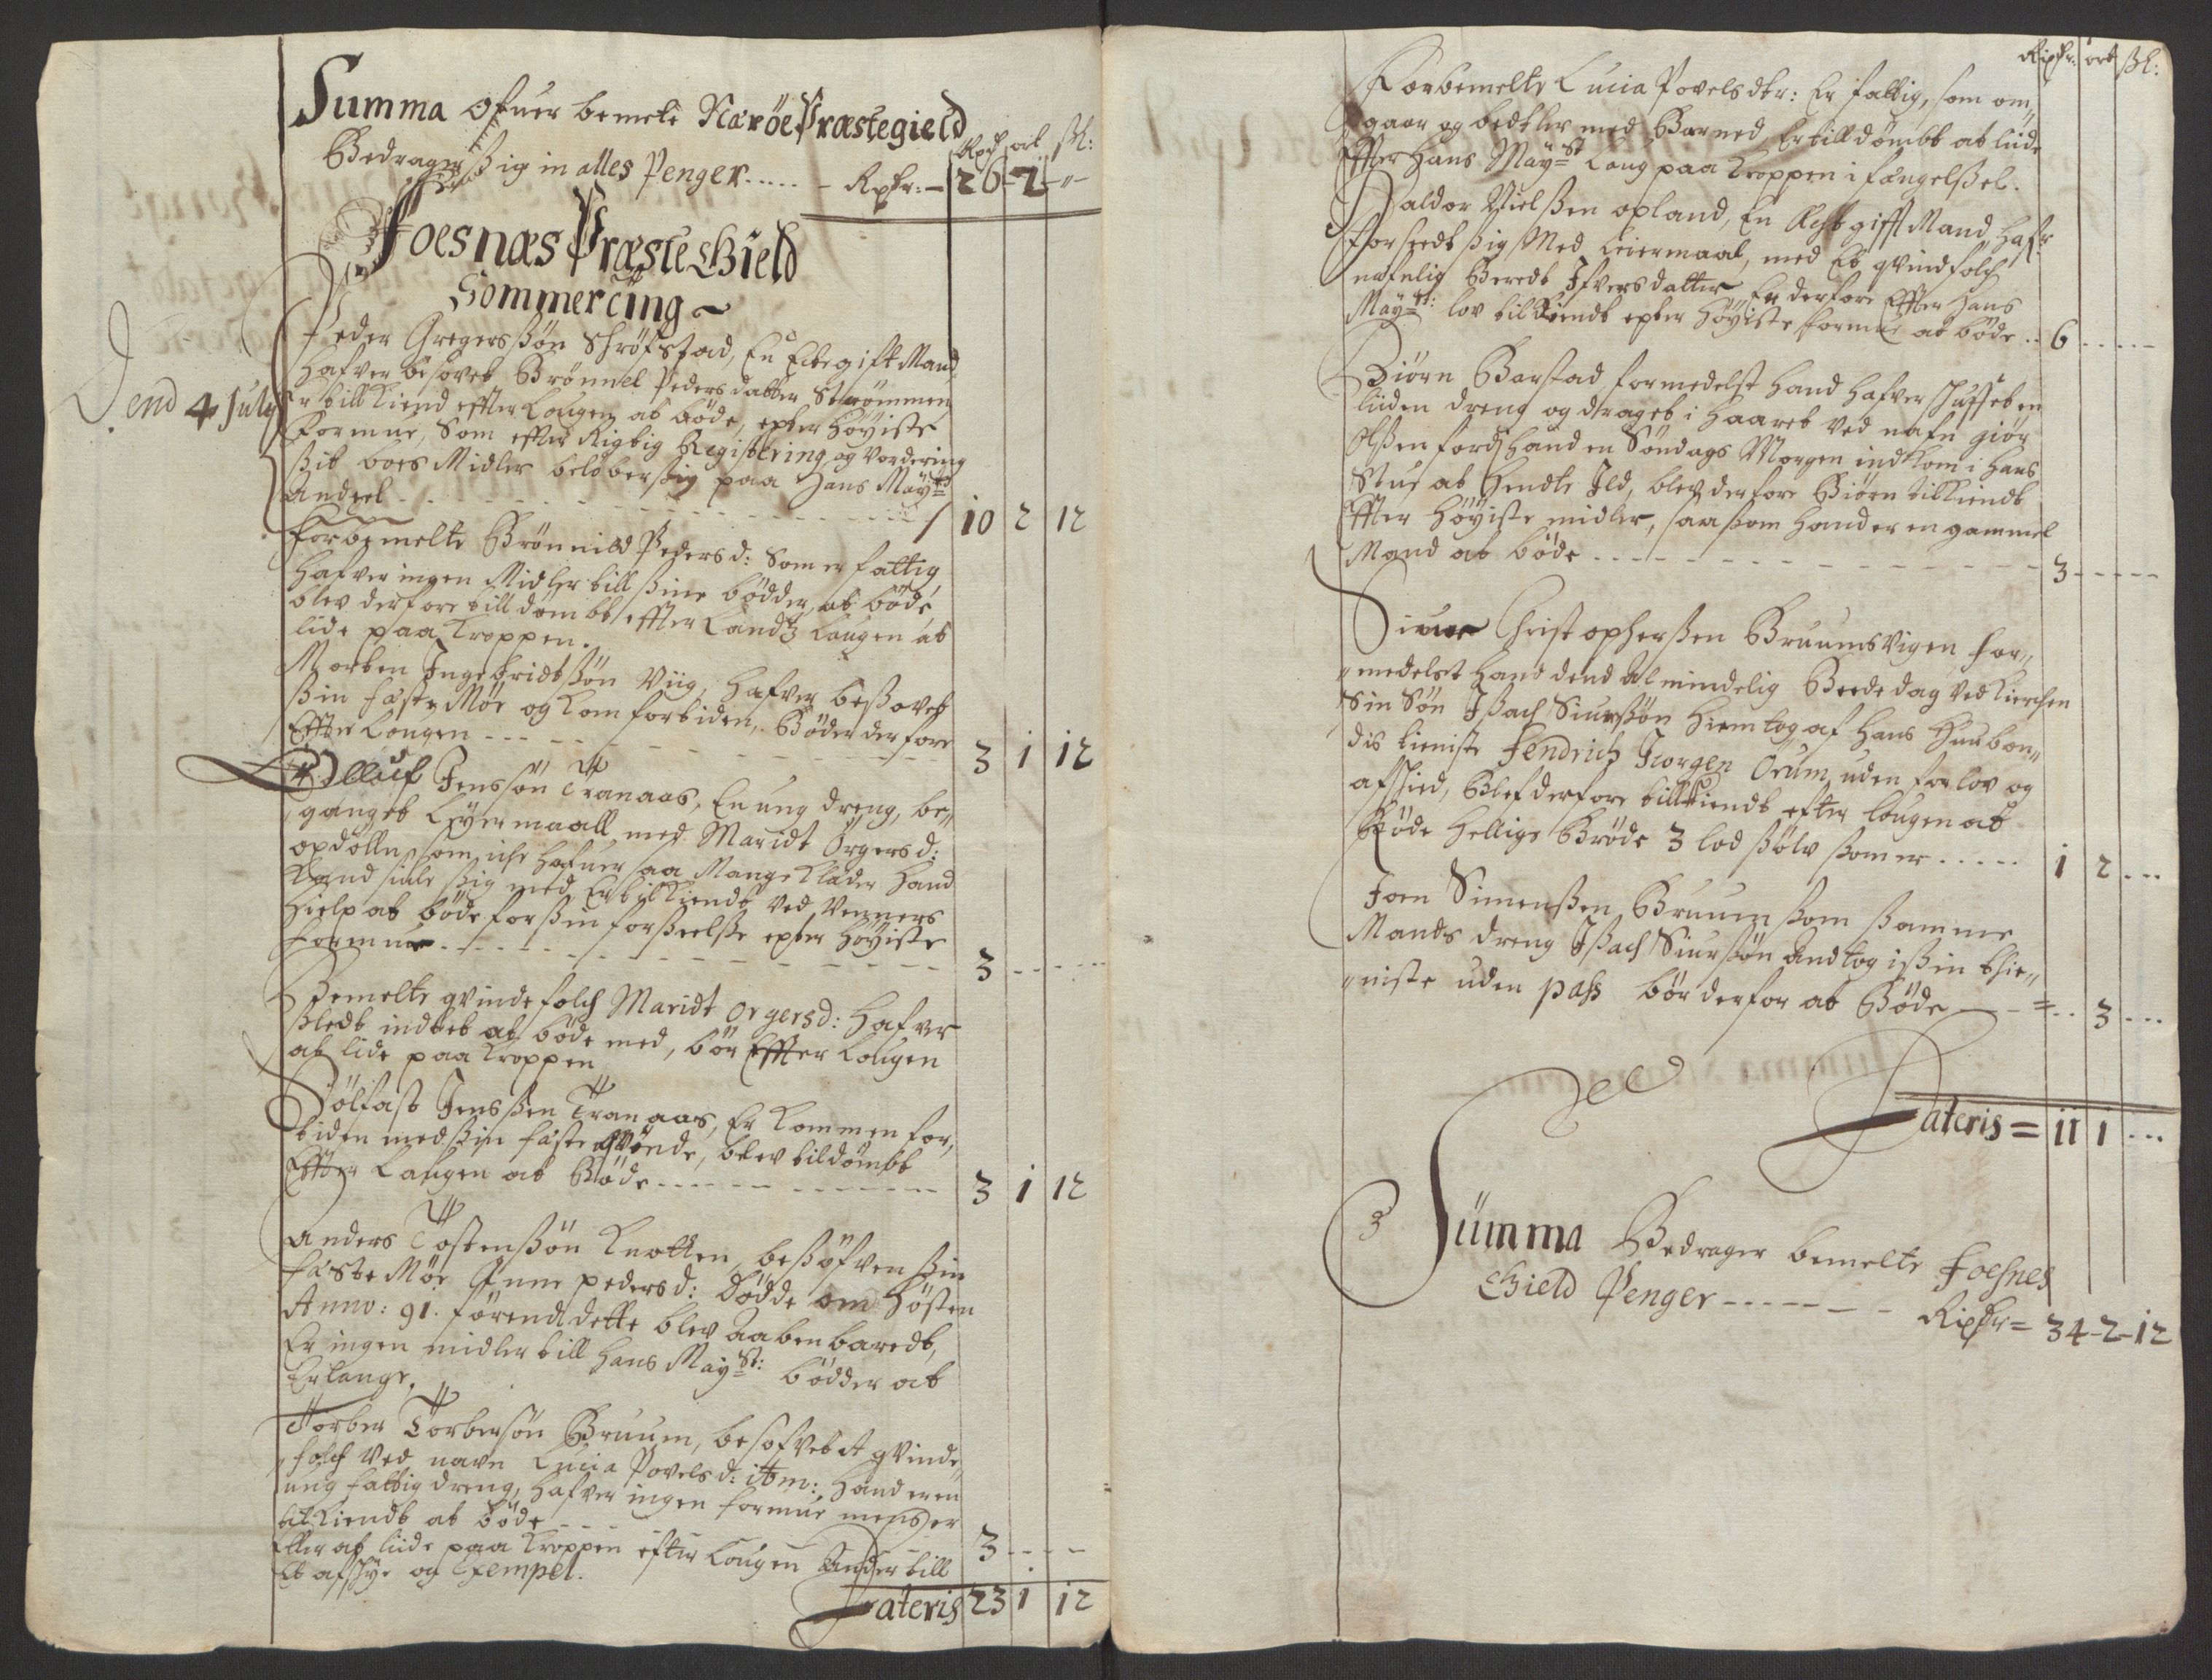 Summa ofuer bemelte Nærøe Præstegield
Rpd ort ß:
Bedrager sig in alles Penger..... - Rxdr: - 26 - 2 - " -
Foesnæs Præste Gield
Sommerting ~
Dend 4 July
Peder Gregerssøn Skrøfstad, En Ectegift Mand
Hafver besovet Brønnel Pedersdatter Strømmen
Er till Kiend effter Lougen at bøde, epter høyiste
Formue, Som effter Rigtig Registering og Vordering
Sit boes Midler beløber sig paa Hans Mayts
Andeel - - - - 10 2 12
Forbemelte Brønnild Pedersd: Som er fattig
hafver ingen Midler till sine bødder at bøde
blev derfore till dømbt effter Landtz Laugen at
lide paa Kroppen.
Morten Ingebridtsøn Viig, Hafver besovet
sin feste Møe og Kom for tiden, Bøder derfore
Effter Lougen - - - - 3 1 12
Olluf Jenssøn Tranaas, En ung dreng, be„
„ganget Leyermaall med Maridt Orgersd:
opdølln, som iche hafuer saa Mange Klæder Hand
Kand skiule sig med, Er till Kiendt Ved Venners
Hielp at bøde for sin forseelsse epter høyiste
formue - - - - 3 - - -
Bemelte qvindefolch Maridt Orgersd: Hafver
sledt indtet at bøde med, bør Effter Lougen
at lide paa Kroppen
Sølfast Jenssen Tranaas, Er Kommen for„
tiden med sin feste qvinde, blev tildømbt
Effter Laugen at Bøde - - - - 3 1 12
Anders Tostenssøn Knotten, besofven sin
feste Møe Anne pedersd: Dødde om Høsten
Anno: 91. førend dette blev Aabenbaredt,
Er ingen midler till Hans Mayst: bødder at
Erlange.
Torber Torbersøn Bruum, besofvet et qvinde„
„folch ved navn Lucia Povelsd: itm: Hand er en
ung fattig dreng, hafver ingen formue mens er
tilkiendt at bøde - - - 3 - - -
Eller at liide paa Kroppen efter Lougen Ander till
Et afskye og Exempel.
Lateris 23 1 12
Rixdr: ort ßl:
Forbemelte Lucia Povels dtr: Er fattig, som om„
„gaar og betler med Barned, Er tilldømbt at liide
Effter Hans Mayst Laug paa Kroppen i fængelssel.
Haldor Nielssen opland, En Echtgifft Mand, Hafr
Forseedt sig Med Leiermaal, med Et qvindfolch
nafnlig Beredt Ifversdatter Er derfore Effter Hans
Mayst: lov tilkiendt epter Høyiste formue at bøde .. 6 - - -
Biørn Barstad formedelst Hand Hafver huset en
liiden dreng og draget i Haaret Ved nafn giør
Olssen fordj Hand en Søndags Morgen indkom i Hans
Stue at Hendte Ild, blev derfore Biørn tilkiendt
Effter Høyiste midler, saa som Hand er en gammel
Mand at bøde - - - - 3 - - -
Siuer Christophersen Bruumsvigen, for„
„medelst Hand dend Almindelig Beededag Ved Kierchen
Sin Søn Isach Siursøn Hiemtog af Hans Huusbon„
dis tieniste Fendrich Jørgen Orum, uden forlov og
afskied, Blef derfore tillkiendt efter lougen at
Bøde Hellige Brøde 3 lod sølv som er - - - 1 2 - - -
Joen Simenssen Bruum som samme
Mands dreng Isach Siursøn Andtog i sin thie„
„niste uden pass bør derfor at Bøde - - - 3 - - -
Lateris = 11 1 - - -
Summa Bedrager bemelte Foesnes
Gield Penger - - - - Rixdr = 34 - 2 - 12